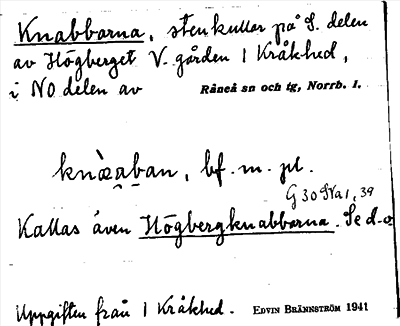 Knabbarna, stenkullar på S. delen
av Högberget V. gården 1 Kråkhed,
i NO delen av Råneå sn och tg, Norrb. l.
bf. m. pl.
G 30 39
Kallas även Högbergknabbarna. Se d.o
Uppgiften från 1 Kråkhed. EDVIN BRÄNNSTRÖM 1941